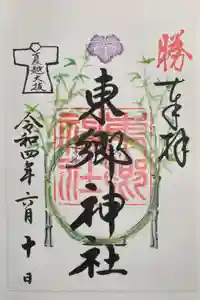 勝
奉拝
東郷神社
東郷神社
夏越大祓
令和四年六月十日